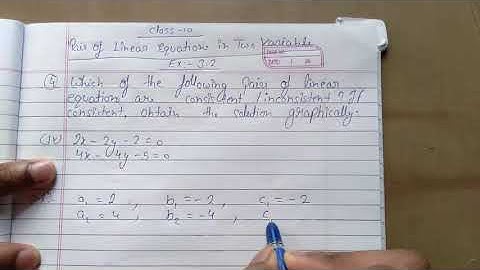 Class-10
Pair of Linear Equations in Two Variable
Ex-3.2
④ Which of the following pairs of linear
equations are consistent / inconsistent? If
consistent, obtain the solution graphically.
(iv) 2x - 2y - 2 = 0
4x - 4y - 5 = 0
a₁ = 2 , b₁ = -2 , c₁ = -2
a₂ = 4 , b₂ = -4 , c